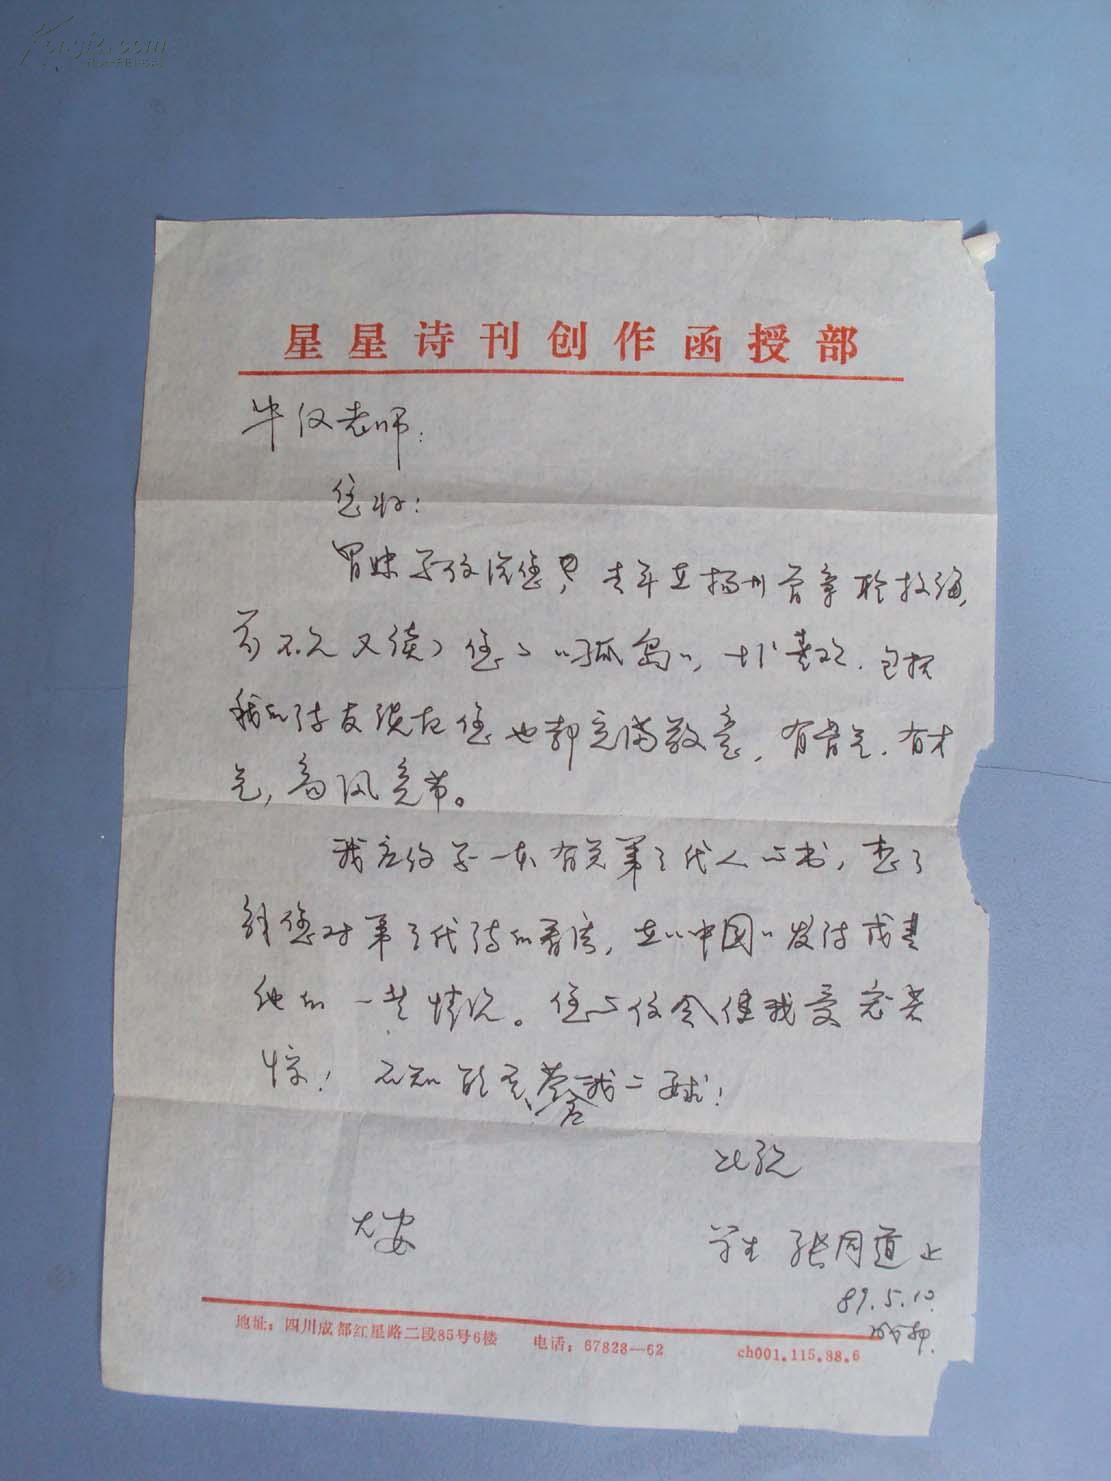 Kongfz.com
星星诗刊创作函授部
牛汉老师：
您好！
冒昧写信给您，去年在扬州曾亲聆教诲，
前不久又读了您的“孤岛”，十分喜欢，包括
我的诗友谈起您也都充满敬意，有骨气，有才
气，高风亮节。
我应约写一本有关第三代人的书，想了
解您对第三代诗的看法，在“中国”发诗或其
他的一些情况。您的信会使我受宠若
惊！不知能否答我一二
此致
大安
学生 张同道 上
89.5.10.
成都.
地址：四川成都红星路二段85号6楼 电话：67828—62 ch001.115.88.6